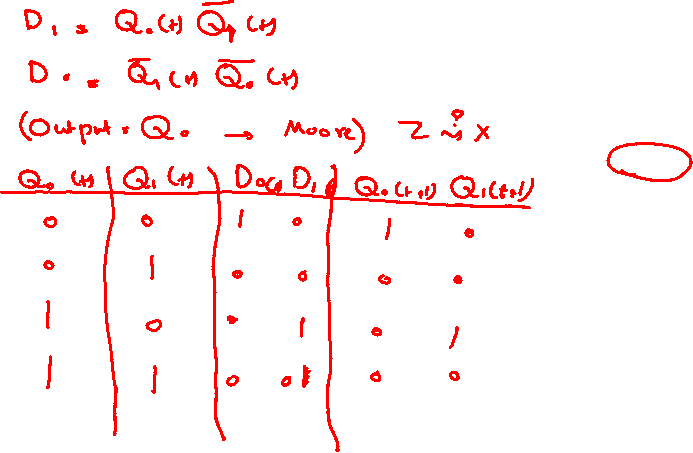 D₁ = Q₀(t) Q̅₁(t)
D₀ = Q̅₁(t) Q̅₀(t)
(Output = Q₀ → Moore) Z X
Q₀(t) Q₁(t) D₀ D₁ Q₀(t+1) Q₁(t+1)
0 0 1 0 1 0
0 1 0 0 0 0
1 0 0 1 0 1
1 1 0 0 0 0